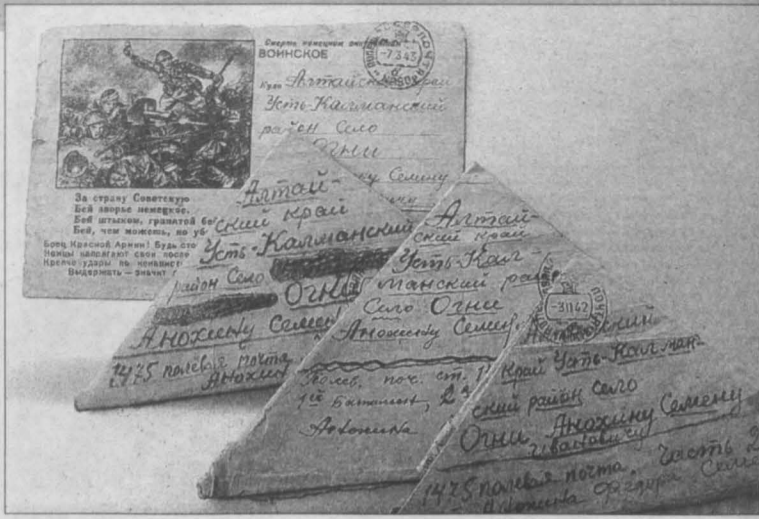 Смерть немецким
ВОИНСКОЕ
-7.3.43
Куда Алтайский край
Усть-Калманский
район Село
Огни
Семену
За страну Советскую
Бей зверье немецкое,
Бей штыком, гранатой бей
Бей, чем можешь, но уб
Боец Красной Армии! Будь сто
Немцы напрягают свои после
Крепче удары по ненавист
Выдержать — значит п
Алтай-
ский край
Усть-Калманский
район Село
Огни
Анохину Семену
1475 полевая почта
Анохин
Алтай-
ский край
Усть-Кал-
манский рай
Село Огни
Анохину Семену
Полев. поч. ст. 1
1й Батальон, 2
Анохина
-3.11.42
Край Усть-Калман-
ский район село
Огни Анохину Семену
Ивановичу
1475 полевая почта. Часть 2
Анохина Федора Семе